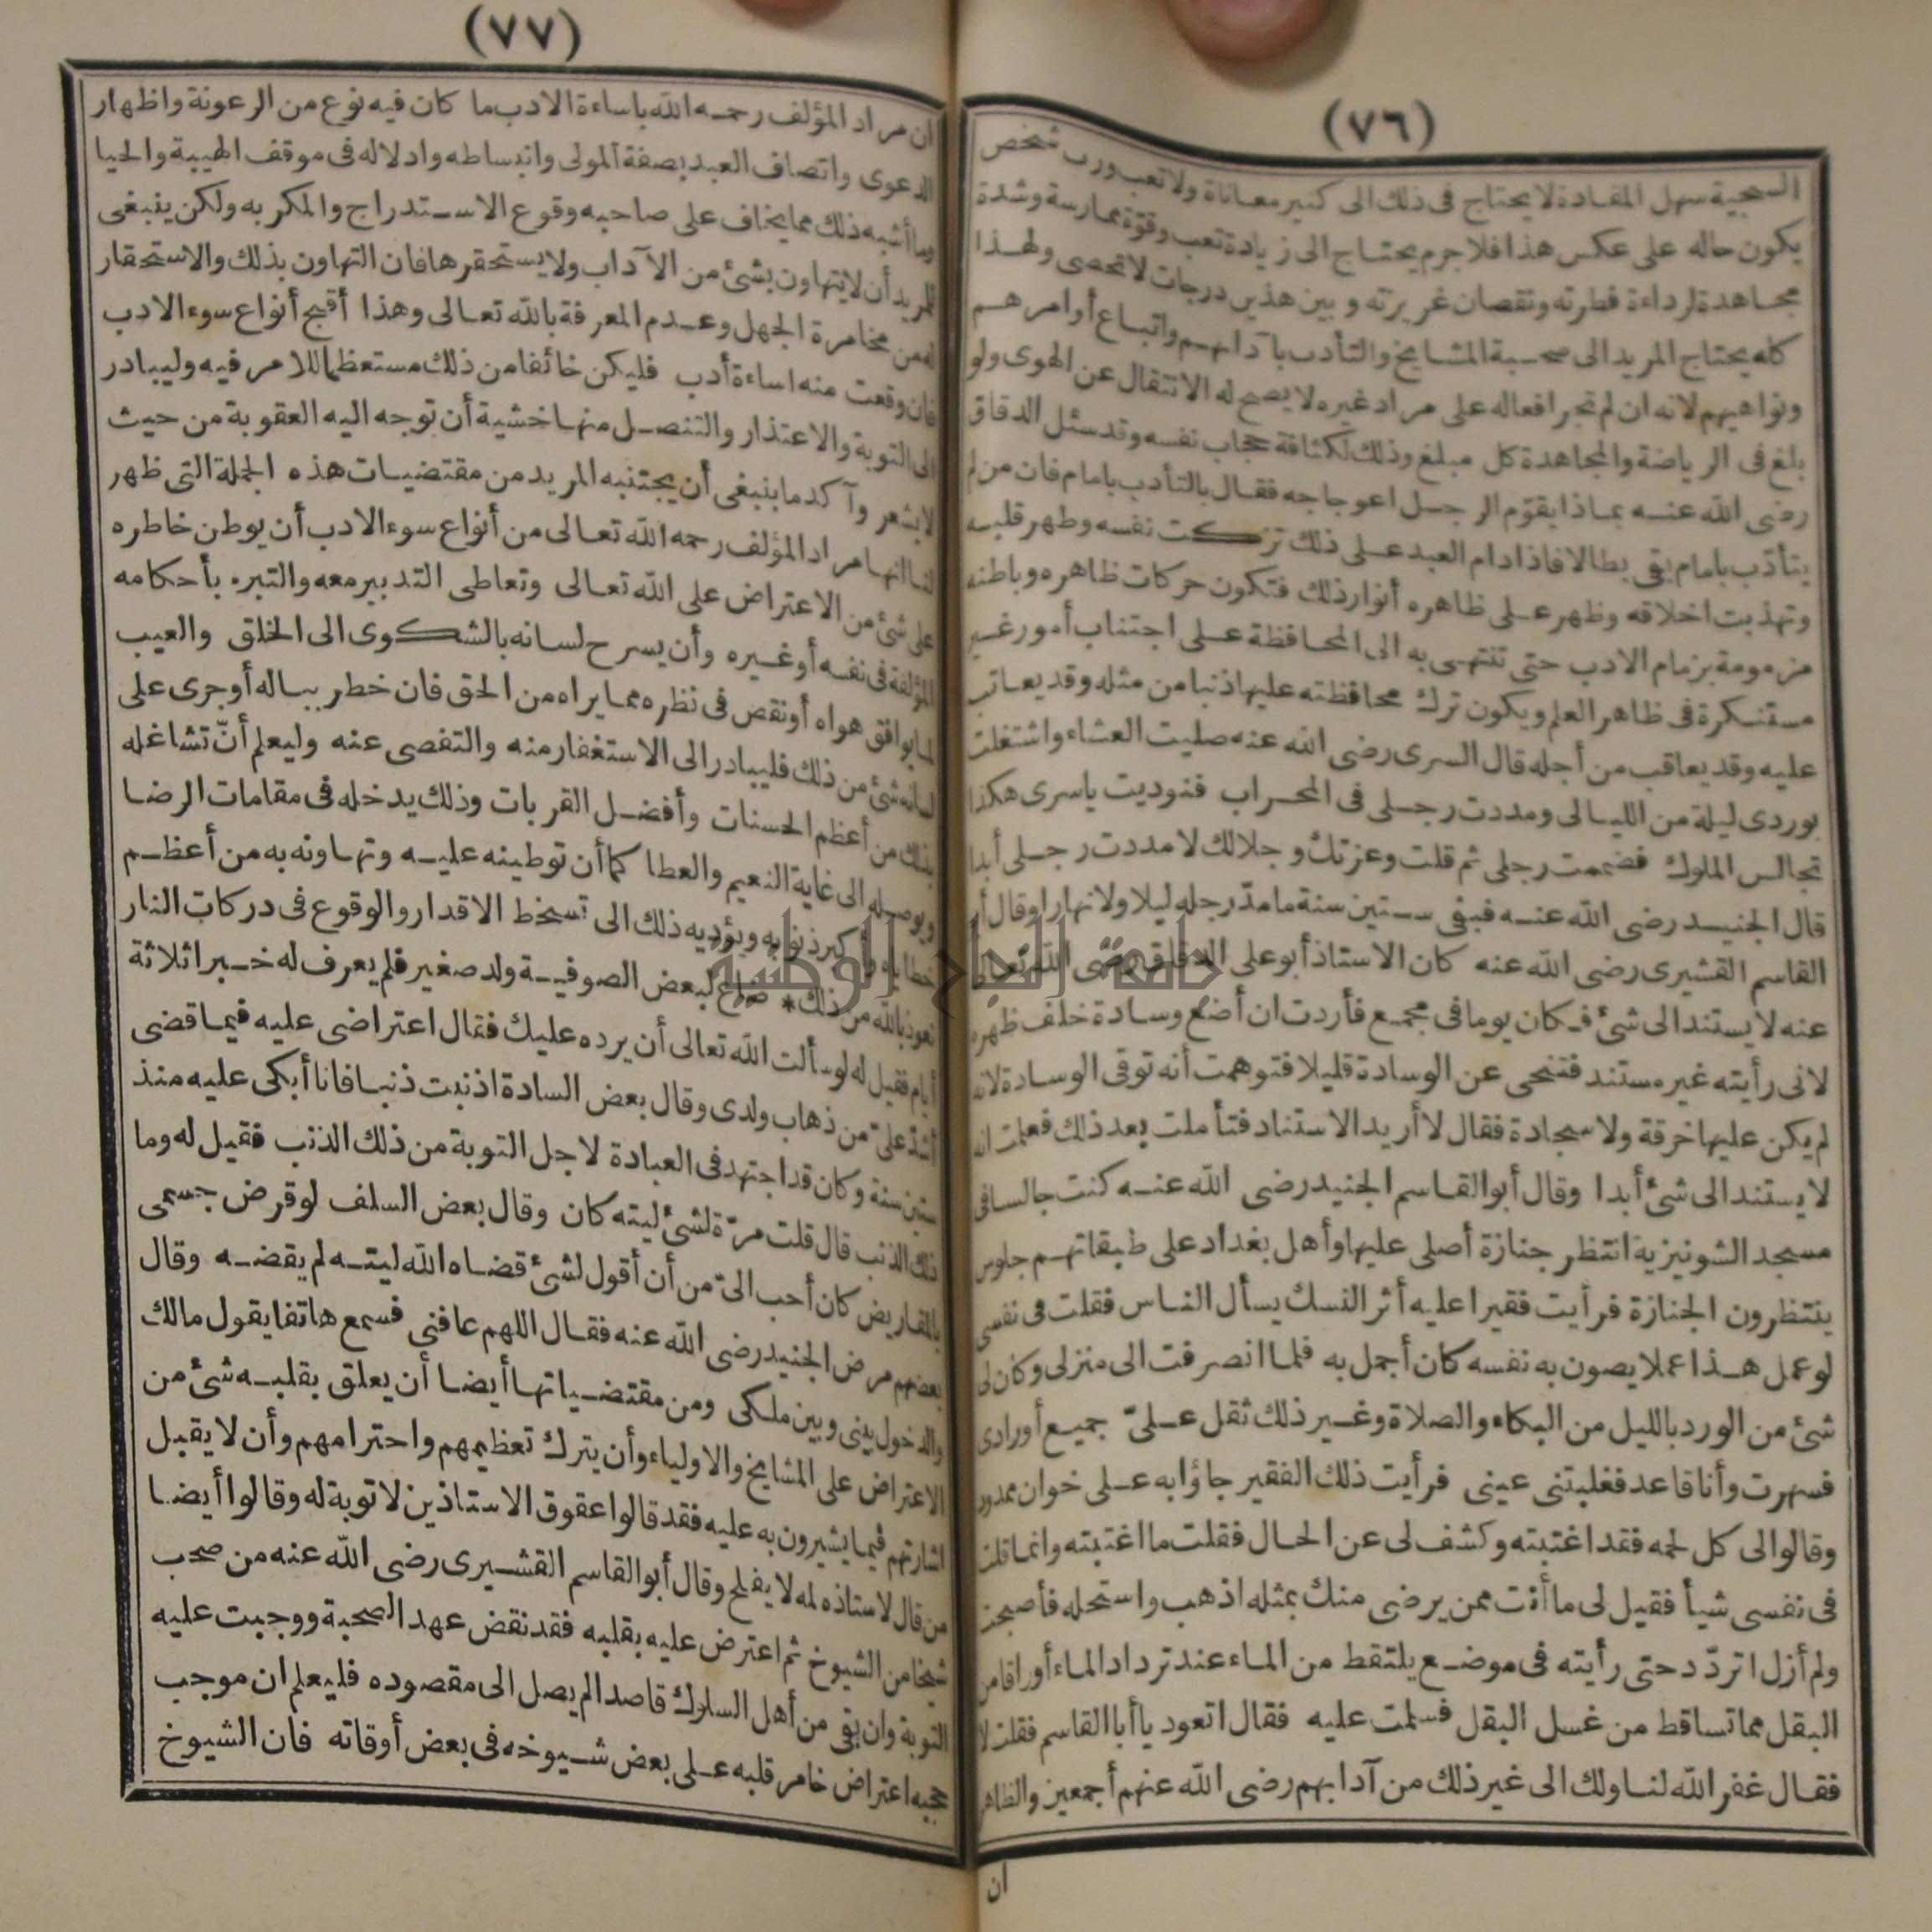 (٧٦)
السجية سهل المقادة لا يحتاج فى ذلك الى كثير معاناة ولا تعب ورب شخص
يكون حاله على عكس هذا فلا جرم يحتاج الى زيادة تعب وقوّة ممارسة وشدة
مجاهدة لرداءة فطرته ونقصان غريزته وبين هذين درجات لا تحصى ولهذا
كله يحتاج المريد الى صحبة المشايخ والتأدب بآدابهم واتباع أوامرهم
ونواهيهم لانه ان لم تجر افعاله على مراد غيره لا يصح له الانتقال عن الهوى ولو
بلغ فى الرياضة والمجاهدة كل مبلغ وذلك لكثافة حجاب نفسه وقد سئل الدقاق
رضى الله عنه بماذا يقوّم الرجل اعوجاجه فقال بالتأدب بامام فان من لم
يتأدّب بامام بقى بطالا فاذا دام العبد على ذلك تزكت نفسه وطهر قلبه
وتهذبت اخلاقه وظهر على ظاهره أنوار ذلك فتكون حركات ظاهره وباطنه
مزمومة بزمام الادب حتى تنتهى به الى المحافظة على اجتناب أمور غير
مستنكرة فى ظاهر العلم ويكون ترك محافظته عليها ذنبا من مثله وقد يعاتب
عليه وقد يعاقب من أجله قال السرى رضى الله عنه صليت العشاء واشتغلت
بوردى ليلة من الليالى ومددت رجلى فى المحراب فنوديت ياسرى هكذا
تجالس الملوك فضممت رجلى ثم قلت وعزتك وجلالك لا مددت رجلى أبدا
قال الجنيد رضى الله عنه فبقى ستين سنة ما مدّ رجله ليلا ولا نهارا وقال أبو
القاسم القشيرى رضى الله عنه كان الاستاذ أبو على الدقاق رضى الله تعالى
عنه لا يستند الى شئ فكان يوما فى مجمع فأردت ان أضع وسادة خلف ظهره
لانى رأيته غير مستند فتنحى عن الوسادة قليلا فتوهمت أنه توقى الوسادة لانه
لم يكن عليها خرقة ولا سجادة فقال لا أريد الاستناد فتأملت بعد ذلك فعلمت انه
لا يستند الى شئ أبدا وقال أبو القاسم الجنيد رضى الله عنه كنت جالسا فى
مسجد الشونيزية انتظر جنازة أصلى عليها وأهل بغداد على طبقاتهم جلوس
ينتظرون الجنازة فرأيت فقيرا عليه أثر النسك يسأل الناس فقلت فى نفسى
لو عمل هذا عملا يصون به نفسه كان أجمل به فلما انصرفت الى منزلى وكان لى
شئ من الورد بالليل من البكاء والصلاة وغير ذلك ثقل علىّ جميع أورادى
فسهرت وأنا قاعد فغلبتنى عينى فرأيت ذلك الفقير جاؤا به على خوان ممدود
وقالوا لى كل لحمه فقد اغتبته وكشف لى عن الحال فقلت ما اغتبته وانما قلت
فى نفسى شيأ فقيل لى ما أنت ممن يرضى منك بمثله اذهب واستحله فأصبحت
ولم أزل اتردّد حتى رأيته فى موضع يلتقط من الماء عند ترداد الماء أوراقا من
البقل مما تساقط من غسل البقل فسلمت عليه فقال اتعود يا أبا القاسم فقلت لا
فقال غفر الله لنا ولك الى غير ذلك من آدابهم رضى الله عنهم أجمعين والظاهر
ان
(٧٧)
ان مراد المؤلف رحمه الله باساءة الادب ما كان فيه نوع من الرعونة واظهار
الدعوى واتصاف العبد بصفة المولى وانبساطه وادلاله فى موقف الهيبة والحيا
وما أشبه ذلك مما يخاف على صاحبه وقوع الاستدراج والمكر به ولكن ينبغى
للمريد أن لا يتهاون بشئ من الآداب ولا يستحقرها فان التهاون بذلك والاستحقار
له من مخامرة الجهل وعدم المعرفة بالله تعالى وهذا أقبح أنواع سوء الادب
فان وقعت منه اساءة أدب فليكن خائفا من ذلك مستعظما للامر فيه وليبادر
الى التوبة والاعتذار والتنصل منها خشية أن توجه اليه العقوبة من حيث
لا يشعر وآكد ما ينبغى أن يجتنبه المريد من مقتضيات هذه الجملة التى ظهر
لنا انها مراد المؤلف رحمه الله تعالى من أنواع سوء الادب أن يوطن خاطره
على شئ من الاعتراض على الله تعالى وتعاطى التدبير معه والتبره بأحكامه
المؤلفة فى نفسه أو غيره وأن يسرح لسانه بالشكوى الى الخلق والعيب
لما يوافق هواه أو نقص فى نظره مما يراه من الحق فان خطر بباله أو جرى على
لسانه شئ من ذلك فليبادر الى الاستغفار منه والتفصى عنه وليعلم أنّ تشاغله
بذلك من أعظم الحسنات وأفضل القربات وذلك يدخله فى مقامات الرضا
ويوصله الى غاية النعيم والعطا كما أن توطينه عليه وتهاونه به من أعظم
خطاياه وأكبر ذنوبه ويؤديه ذلك الى تسخط الاقدار والوقوع فى دركات النار
نعوذ بالله من ذلك * ضاع لبعض الصوفية ولد صغير فلم يعرف له خبرا ثلاثة
أيام فقيل له لو سألت الله تعالى أن يرده عليك فقال اعتراضى عليه فيما قضى
أشدّ علىّ من ذهاب ولدى وقال بعض السادة اذنبت ذنبا فانا أبكى عليه منذ
ستين سنة وكان قد اجتهد فى العبادة لاجل التوبة من ذلك الذنب فقيل له وما
ذلك الذنب قال قلت مرّة لشئ ليته كان وقال بعض السلف لو قرض جسمى
بالمقاريض كان أحب الىّ من أن أقول لشئ قضاه الله ليته لم يقضه وقال
بعضهم مرض الجنيد رضى الله عنه فقال اللهم عافنى فسمع هاتفا يقول مالك
والدخول بينى وبين ملكى ومن مقتضياتها أيضا أن يعلق بقلبه شئ من
الاعتراض على المشايخ والاولياء وأن يترك تعظيمهم واحترامهم وأن لا يقبل
اشارتهم فيما يشيرون به عليه فقد قالوا عقوق الاستاذين لا توبة له وقالوا أيضا
من قال لاستاذه لمه لا يفلح وقال أبو القاسم القشيرى رضى الله عنه من صحب
شيخا من الشيوخ ثم اعترض عليه بقلبه فقد نقض عهد الصحبة ووجبت عليه
التوبة وان بقى من أهل السلوك قاصدا لم يصل الى مقصوده فليعلم ان موجب
حجبه اعتراض خامر قلبه على بعض شيوخه فى بعض أوقاته فان الشيوخ
جامعة النجاح الوطنية